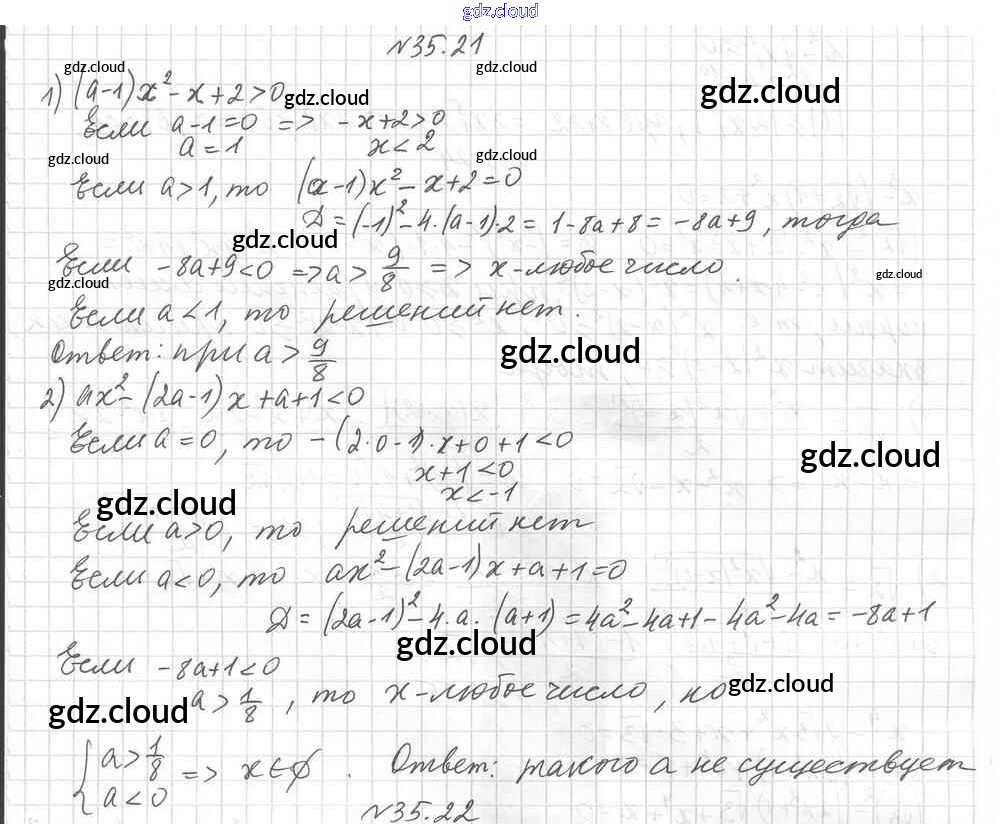 gdz.cloud
N35.21
gdz.cloud gdz.cloud
1) (a-1)x²-x+2>0 gdz.cloud gdz.cloud
Если a-1=0 => -x+2>0
a=1 x<2
gdz.cloud gdz.cloud
Если a>1, то (a-1)x²-x+2=0
Д=(-1)²-4·(a-1)·2=1-8a+8=-8a+9, тогда
gdz.cloud
Если -8a+9<0 => a>9/8 => x-любое число.
gdz.cloud gdz.cloud
Если a<1, то решений нет.
Ответ: при a>9/8 gdz.cloud
2) ax²-(2a-1)x+a+1<0
Если a=0, то -(2·0-1)·x+0+1<0
x+1<0 gdz.cloud
x<-1
gdz.cloud
Если a>0, то решений нет
Если a<0, то ax²-(2a-1)x+a+1=0
Д=(2a-1)²-4·a·(a+1)=4a²-4a+1-4a²-4a=-8a+1
gdz.cloud
Если -8a+1<0
a>1/8, то x-любое число, но gdz.cloud
gdz.cloud
{a>1/8
a<0 => x∈∅. Ответ: такого a не существует
N35.22